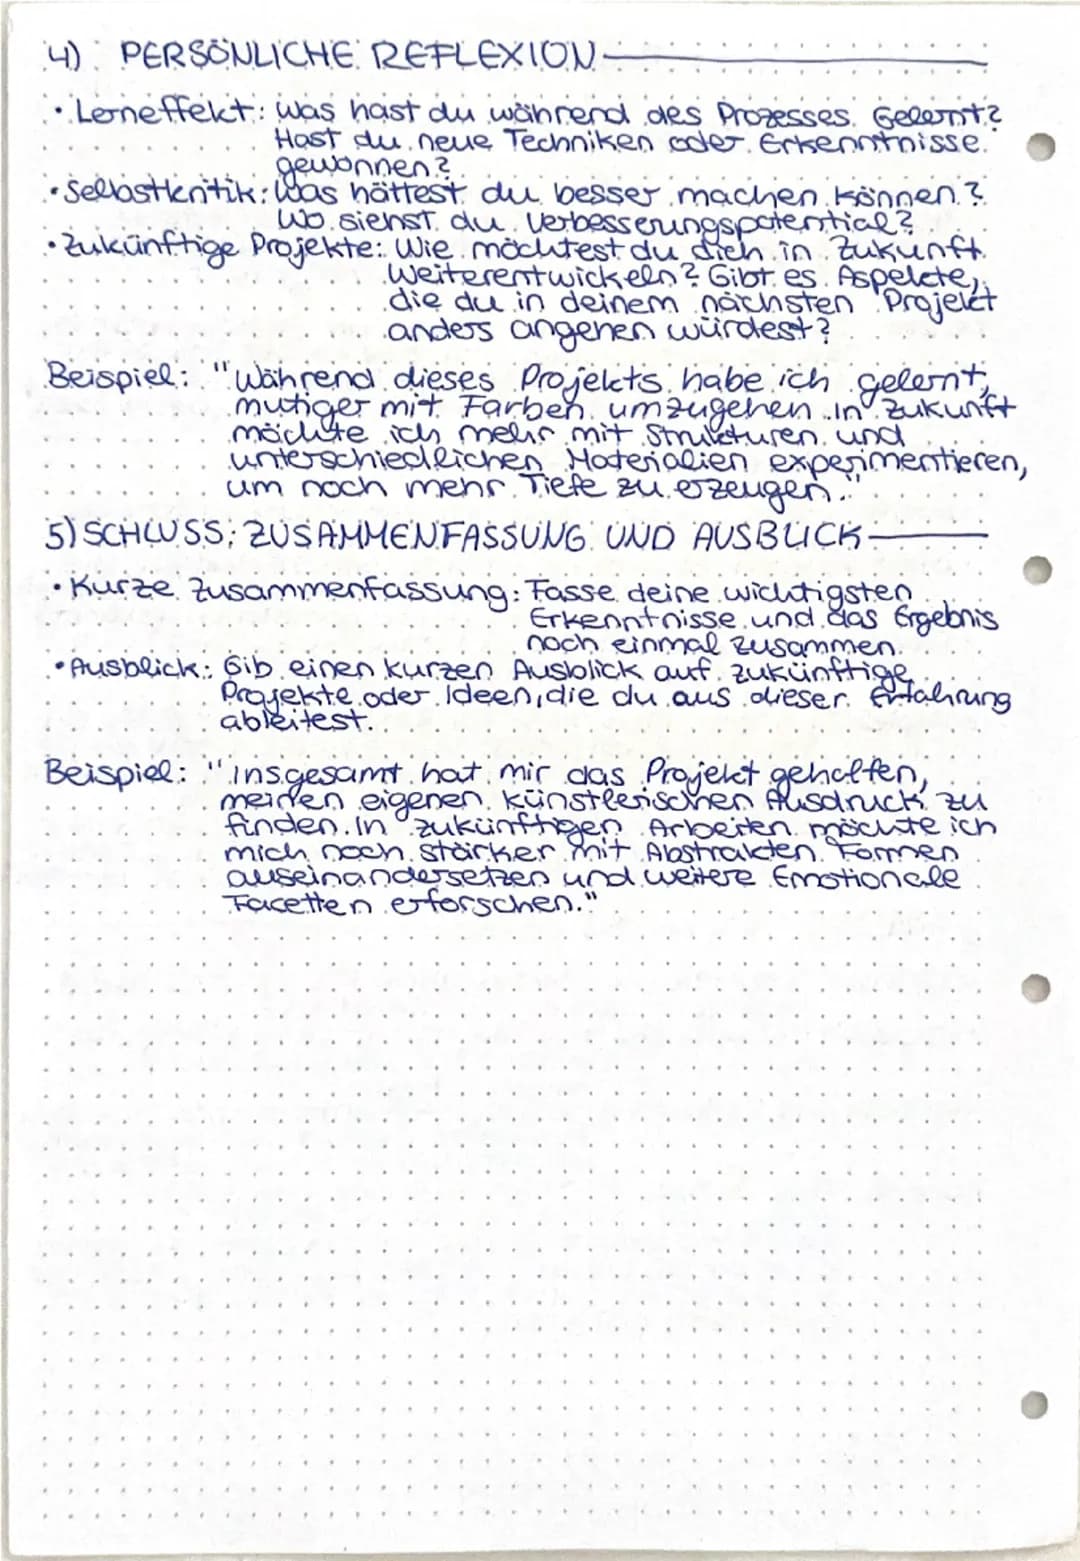 4) PERSÖNLICHE REFLEXION
• Lerneffekt: Was hast du während des Prozesses Gelernt?
Hast du neue Techniken oder Erkenntnisse
gewonnen?
• Selbstkritik: Was hättest du besser machen können?
Wo siehst du Verbesserungspotential?
• Zukünftige Projekte: Wie möchtest du dich in Zukunft
Weiterentwickeln? Gibt es Aspekte,
die du in deinem nächsten Projekt
anders angehen würdest?
Beispiel: "Während dieses Projekts habe ich gelernt,
mutiger mit Farben umzugehen. In Zukunft
möchte ich mehr mit Strukturen und
unterschiedlichen Materialien experimentieren,
um noch mehr Tiefe zu erzeugen."
5) SCHLUSS: ZUSAMMENFASSUNG UND AUSBLICK
• Kurze Zusammenfassung: Fasse deine wichtigsten
Erkenntnisse und das Ergebnis
noch einmal zusammen.
• Ausblick: Gib einen kurzen Ausblick auf zukünftige
Projekte oder Ideen, die du aus dieser Erfahrung
ableitest.
Beispiel: "Insgesamt hat mir das Projekt geholfen,
meinen eigenen künstlerischen Ausdruck zu
finden. In zukünftigen Arbeiten möchte ich
mich noch stärker mit Abstrakten Formen
auseinandersetzen und weitere Emotionale
Facetten erforschen."